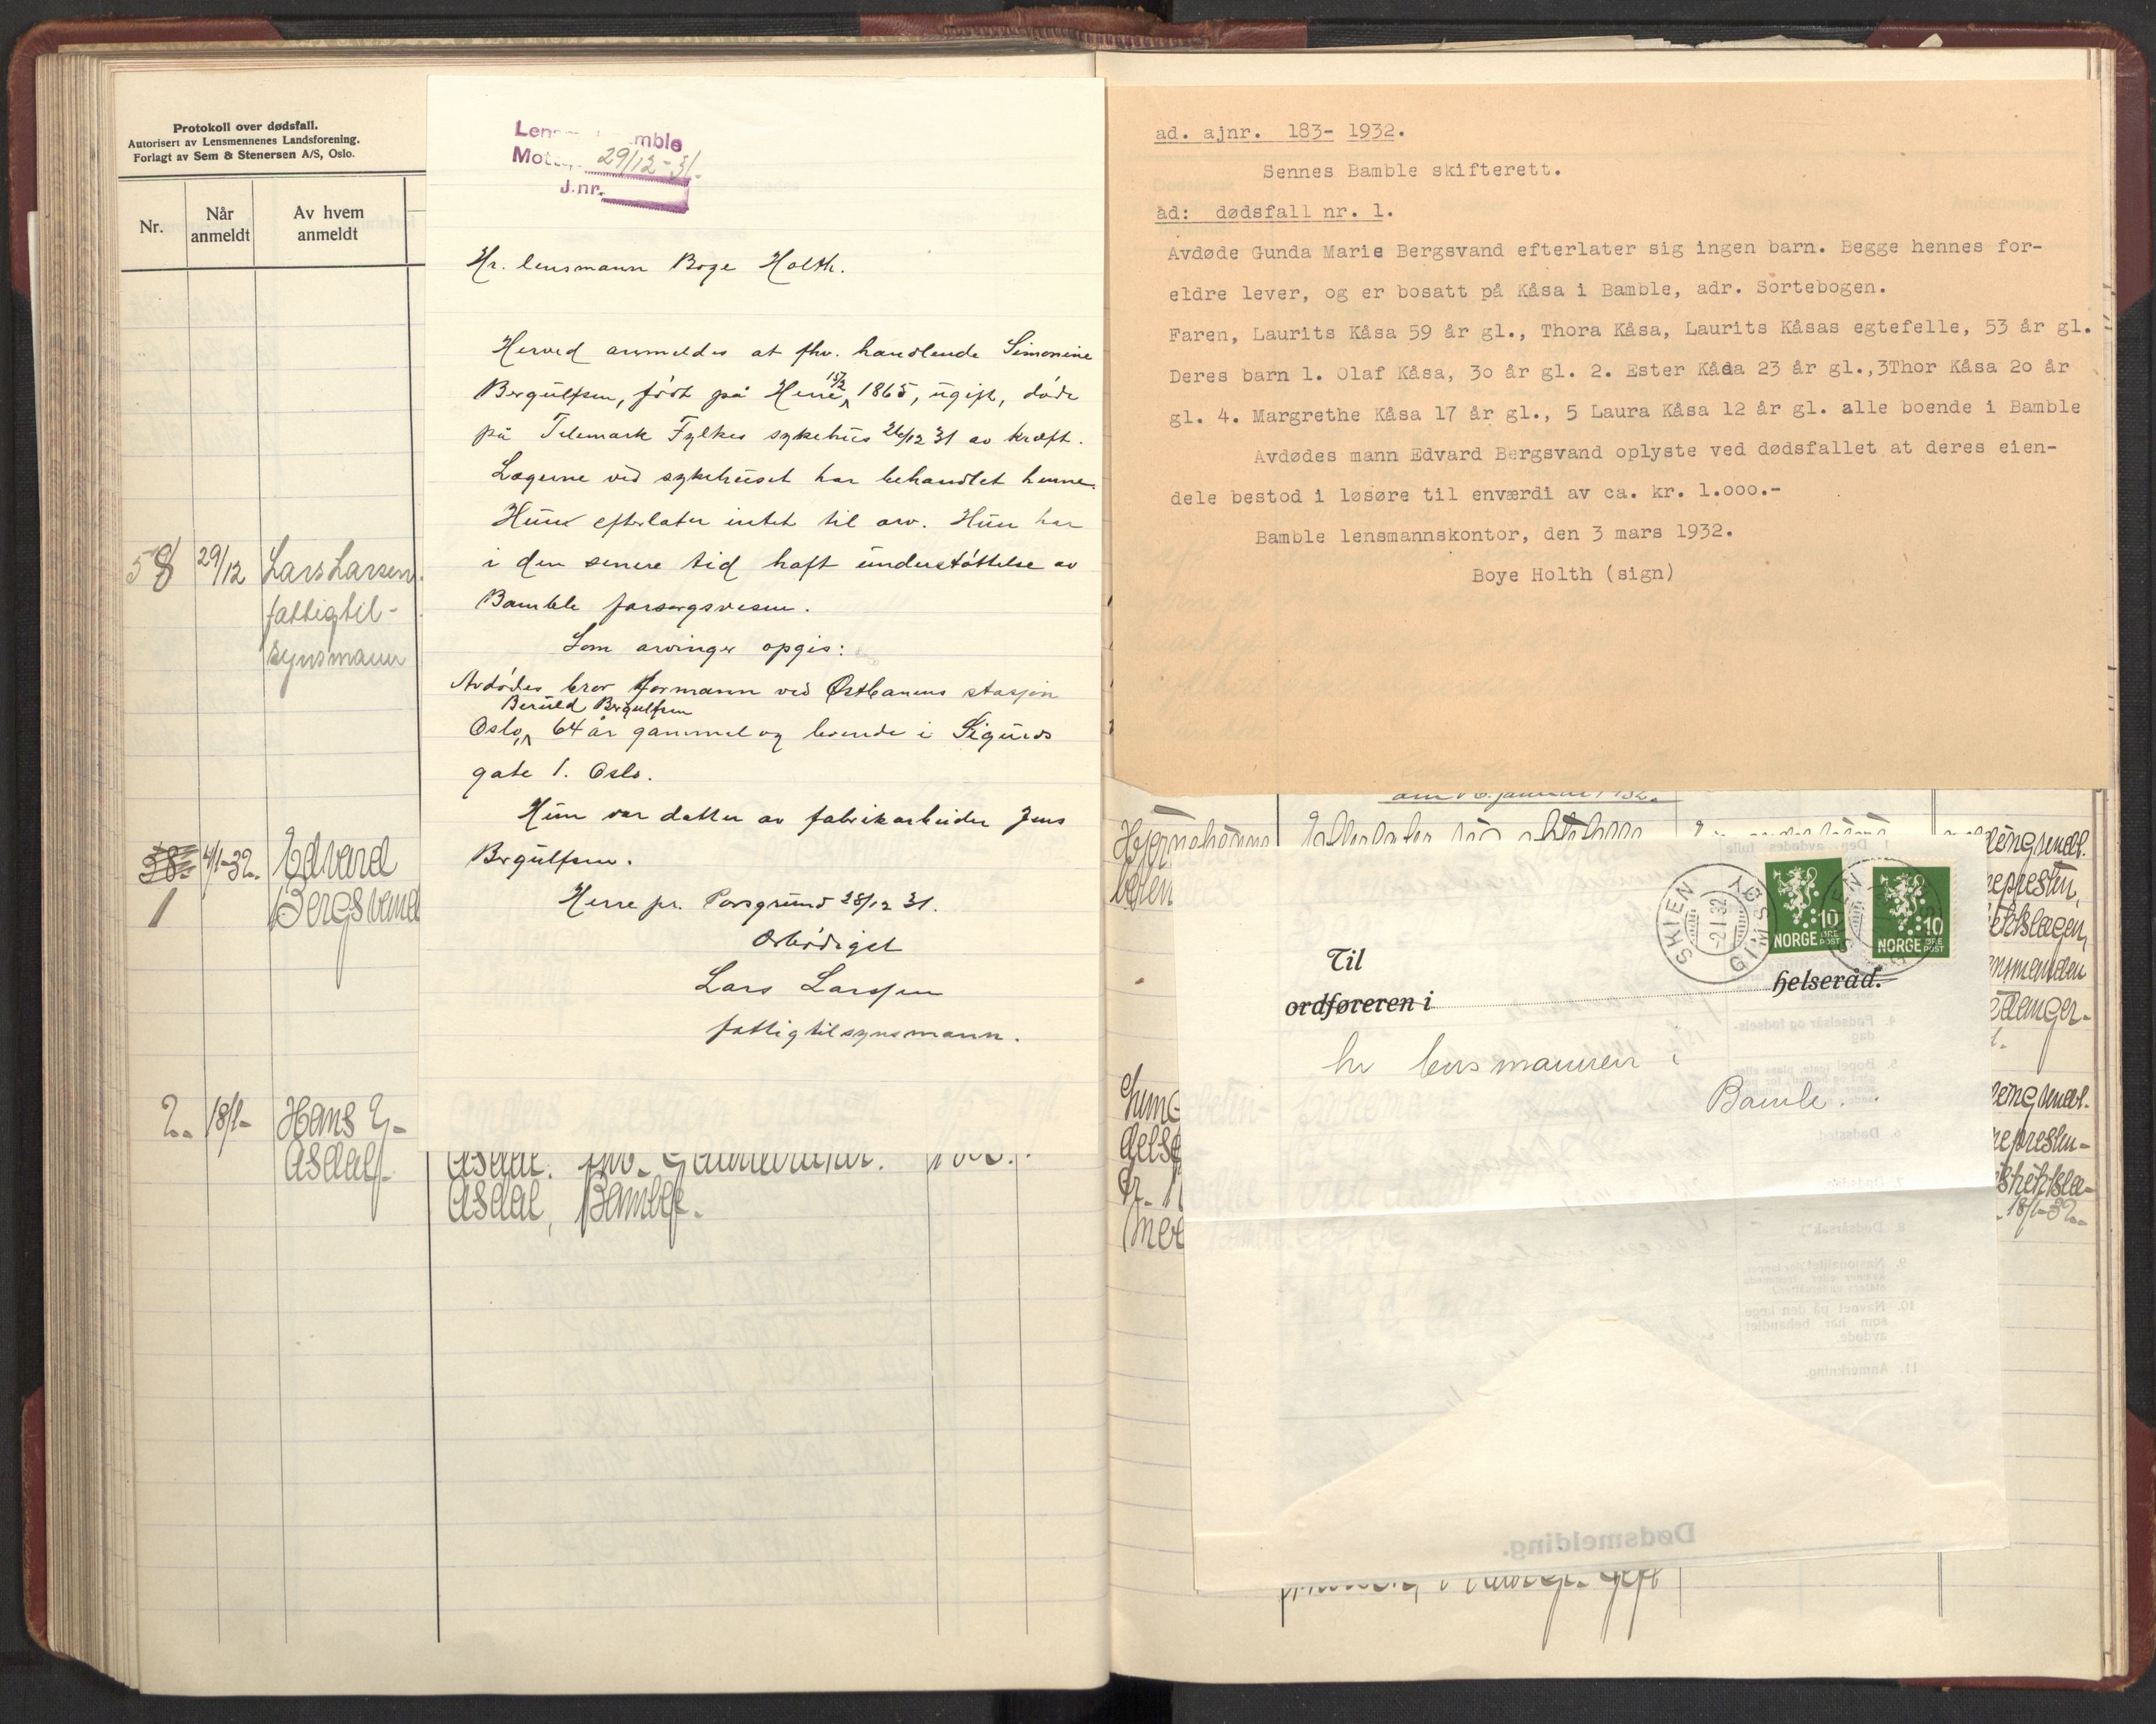 Protokoll over dødsfall.
Autorisert av Lensmennenes Landsforening.
Forlagt av Sem & Stenersen A/S, Oslo.
Nr.
Når
anmeldt
Av hvem
anmeldt
58 29/12 Lars Larsen.
fattigtil-
synsmann
4/1-32. Edvard
1 Bergsvend
2. 18/1- Hans E-
Asdal.
Asdal,
Asdal, Bamble.
mble
29/12-31.
J.nr.
Hr. lensmann Boye Holth.
Herved anmeldes at fhv. handlende Simonine
Bergulfsen, født på Herre 15/2 1865, ugift, døde
på Telemark Fylkes sykehus 26/12 31 av kræft.
Lægerne ved sykehuset har behandlet henne.
Hun efterlater intet til arv. Hun har
i den senere tid haft understøttelse av
Bamble forsorgsvesen.
Som arvinger opgis:
Avdødes bror formann ved Østbanens stasjon
Berild Bergulfsen
Oslo, 64 år gammel og boende i Sigurds
gate 1. Oslo.
Hun var datter av fabrikarbeider Jens
Bergulfsen.
Herre pr. Porsgrund 28/12 31.
Ærbødigst
Lars Larssen
fattigtilsynsmann.
ad. ajnr. 183- 1932.
Sennes Bamble skifterett.
ad: dødsfall nr. 1.
Avdøde Gunda Marie Bergsvand efterlater sig ingen barn. Begge hennes for-
eldre lever, og er bosatt på Kåsa i Bamble, adr. Sortebogen.
Faren, Laurits Kåsa 59 år gl., Thora Kåsa, Laurits Kåsas egtefelle, 53 år gl.
Deres barn 1. Olaf Kåsa, 3o år gl. 2. Ester Kåsa 23 år gl.,3Thor Kåsa 2o år
gl. 4. Margrethe Kåsa 17 år gl., 5 Laura Kåsa 12 år gl. alle boende i Bamble
Avdødes mann Edvard Bergsvand oplyste ved dødsfallet at deres eien-
dele bestod i løsøre til enværdi av ca. kr. 1.ooo.-
Bamble lensmannskontor, den 3 mars 1932.
Boye Holth (sign)
SKIEN
-2 1 32
GIMSØY
10
NORGE ØRE
POST
10
NORGE ØRE
POST
Til
ordføreren i helseråd.
hr lensmannen i
Bamble.
18/1-32.
Dødsmelding.